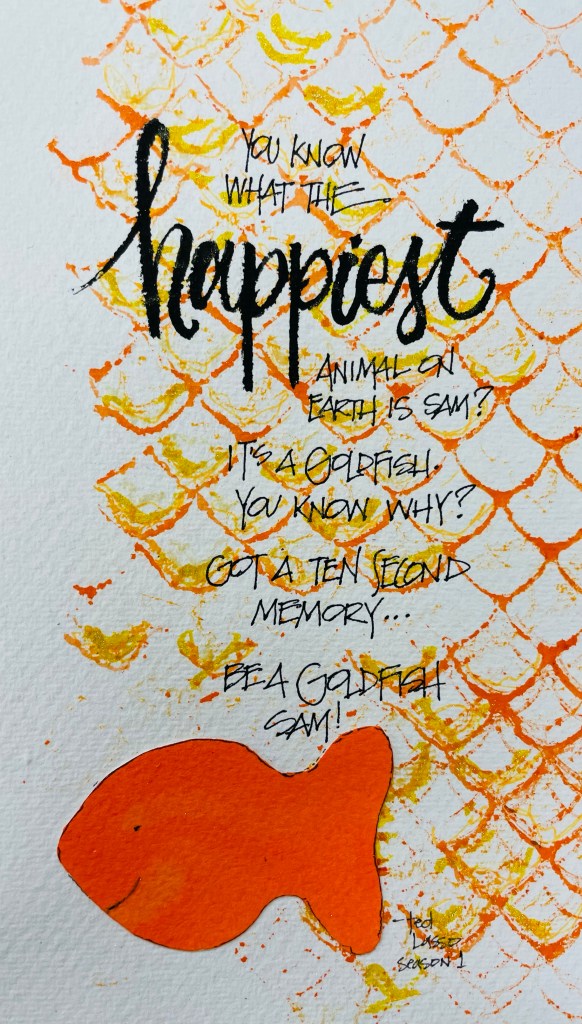 YOU KNOW
WHAT THE
happiest
ANIMAL ON
EARTH IS SAM?
IT'S A GOLDFISH.
YOU KNOW WHY?
GOT A TEN SECOND
MEMORY...
BE A GOLDFISH
SAM!
-ted
Lasso
season 1